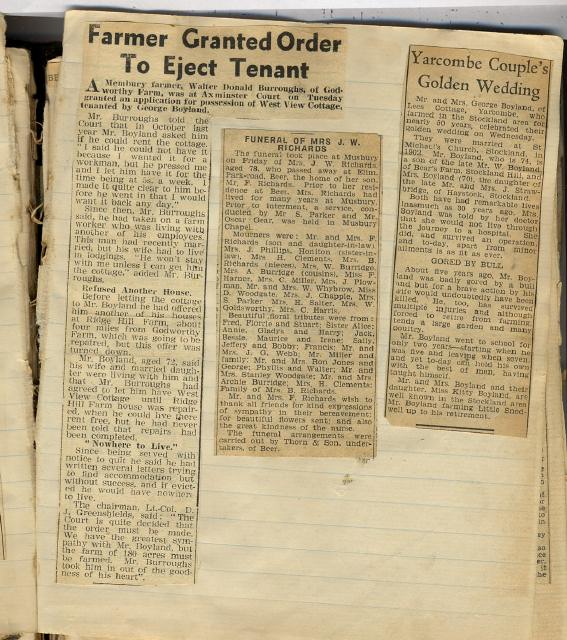 Farmer Granted Order
To Eject Tenant
A Membury farmer, Walter Donald Burroughs, of God-
worthy Farm, was at Axminster Court on Tuesday
granted an application for possession of West View Cottage,
tenanted by George Boyland.
Mr. Burroughs told the
Court that in October last
year Mr. Boyland asked him
if he could rent the cottage.
"I said he could not have it
because I wanted it for a
workman, but he pressed me
and I let him have it for the
time being at 5s. a week. I
made it quite clear to him be-
fore he went in that I would
want it back any day."
Since then, Mr. Burroughs
said, he had taken on a farm
worker who was living with
another of his employees.
This man had recently mar-
ried, but his wife had to live
in lodgings. "He won't stay
with me unless I can get him
the cottage," added Mr. Bur-
roughs.
Refused Another House.
Before letting the cottage
to Mr. Boyland he had offered
him another of his houses
at Ridge Hill Farm, about
four miles from Godworthy
Farm, which was going to be
repaired, but this offer was
turned down.
Mr. Boyland, aged 72, said
his wife and married daugh-
ter were living with him and
that Mr. Burroughs had
agreed to let him have West
View Cottage until Ridge
Hill Farm house was repair-
ed, when he could live there
rent free, but he had never
been told that repairs had
been completed.
"Nowhere to Live."
Since being served with
notice to quit he said he had
written several letters trying
to find accommodation but
without success, and if evict-
ed he would have nowhere
to live.
The chairman, Lt.-Col. D.
J. Greenshields, said: "The
Court is quite decided that
the order must be made.
We have the greatest sym-
pathy with Mr. Boyland, but
the farm of 180 acres must
be farmed. Mr. Burroughs
took him in out of the good-
ness of his heart".
FUNERAL OF MRS J. W.
RICHARDS
The funeral took place at Musbury
on Friday of Mrs. J. W. Richards,
aged 78, who passed away at Elm,
Park-road, Beer, the home of her son,
Mr. F. Richards. Prior to her resi-
dence at Beer, Mrs. Richards had
lived for many years at Musbury.
Prior to interment, a service, con-
ducted by Mr S. Parker and Mr.
Oscar Gear, was held in Musbury
Chapel.
Mourners were: Mr. and Mrs. F.
Richards (son and daughter-in-law),
Mrs. J. Phillips, Honiton (sister-in-
law), Mrs H. Clements, Mrs. B.
Richards (nieces), Mrs. W. Burridge,
Mrs. A. Burridge (cousins), Miss F.
Harner, Mrs. C. Miller, Mrs. J. Plow-
man, Mr. and Mrs. W. Whybrow, Miss
D. Woodgate, Mrs. J. Chapple, Mrs.
S. Parker, Mrs E. Salter, Mrs. W.
Godsworthy, Mrs. C. Harris.
Beautiful floral tributes were from:
Fred, Florrie and Stuart; Sister Alice;
Annie, Gladys and Harry; Jack,
Bessie, Maurice and Irene; Sally,
Jeffery and Bobby; Francis; Mr. and
Mrs. J. G. Webb; Mr. Miller and
family; Mr. and Mrs. Ron Jones and
George; Phyllis and Walter; Mr. and
Mrs. Stanley Woodgate; Mr. and Mrs.
Archie Burridge; Mrs. H. Clements;
Family of Mrs. B. Richards.
Mr. and Mrs. F. Richards wish to
thank all friends for kind expressions
of sympathy in their bereavement;
for beautiful flowers sent; and also
the great kindness of the nurse.
The funeral arrangements were
carried out by Thorn & Son, under-
takers, of Beer.
Yarcombe Couple's
Golden Wedding
Mr. and Mrs. George Boyland, of
Lees Cottage, Yarcombe, who
farmed in the Stockland area for
nearly 50 years, celebrated their
golden wedding on Wednesday.
They were married at St.
Michael's Church, Stockland, in
1902. Mr. Boyland, who is 74, is
a son of the late Mr. W. Boyland,
of Beer's Farm, Stockland Hill, and
Mrs. Boyland (70), the daughter of
the late Mr. and Mrs. J. Straw-
bridge, of Haystock, Stockland.
Both have had remarkable lives
inasmuch as 30 years ago, Mrs.
Boyland was told by her doctor
that she would not live through
the journey to a hospital. She
did, and survived an operation
and to-day, apart from minor
ailments is as fit as ever.
GORED BY BULL
About five years ago, Mr. Boy-
land was badly gored by a bull
and but for a brave action by his
wife would undoubtedly have been
killed. He, too, has survived
multiple injuries and although
forced to retire from farming,
tends a large garden and many
poultry.
Mr. Boyland went to school for
only two years—starting when he
was five and leaving when seven,
and yet to-day can hold his own
with the best of them, having
taught himself.
Mr. and Mrs. Boyland and their
daughter, Miss Kitty Boyland, are
well known in the Stockland area
Mr. Boyland farming Little Sned-
well up to his retirement.